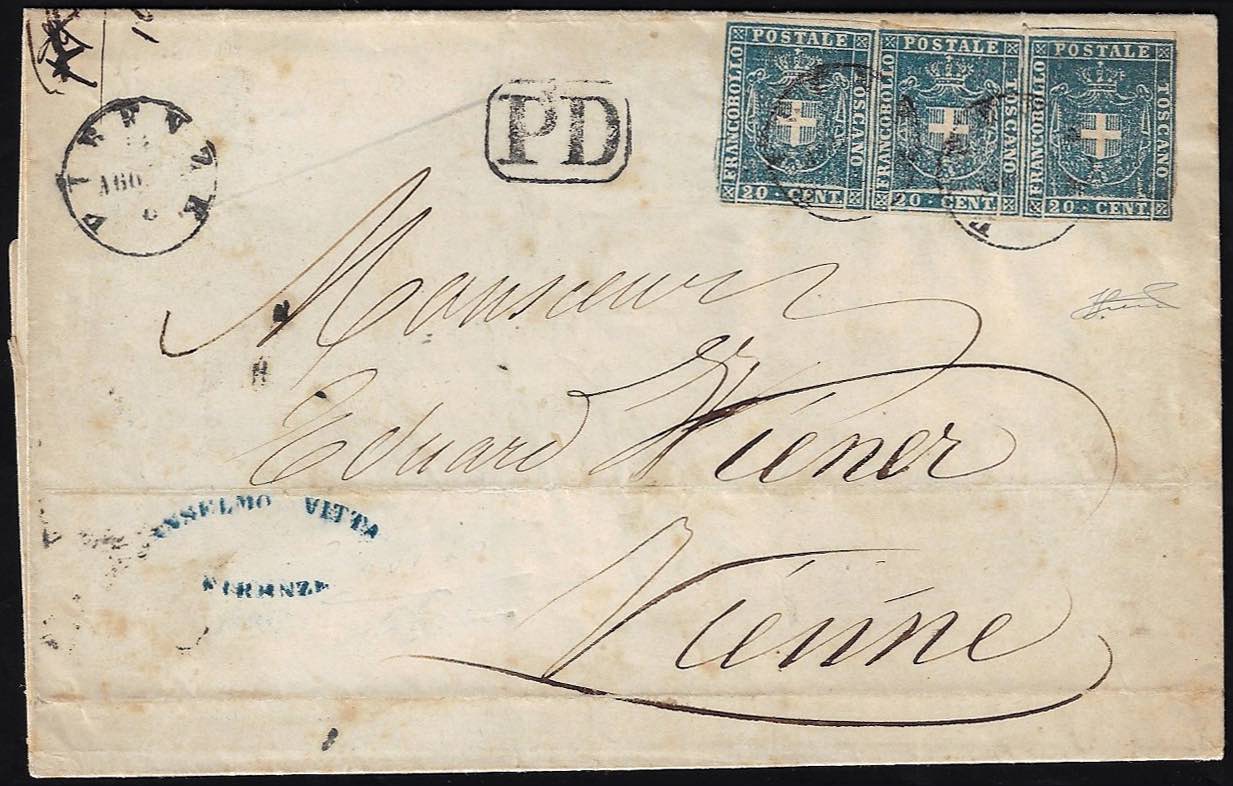 FRANCOBOLLO POSTALE TOSCANO 20 · CENT.
FRANCOBOLLO POSTALE TOSCANO 20 · CENT.
FRANCOBOLLO POSTALE TOSCANO 20 · CENT.
PD
AGO
Monsieur
Eduard Wiener
ANSELMO VITTA
FIRENZE
Vienne